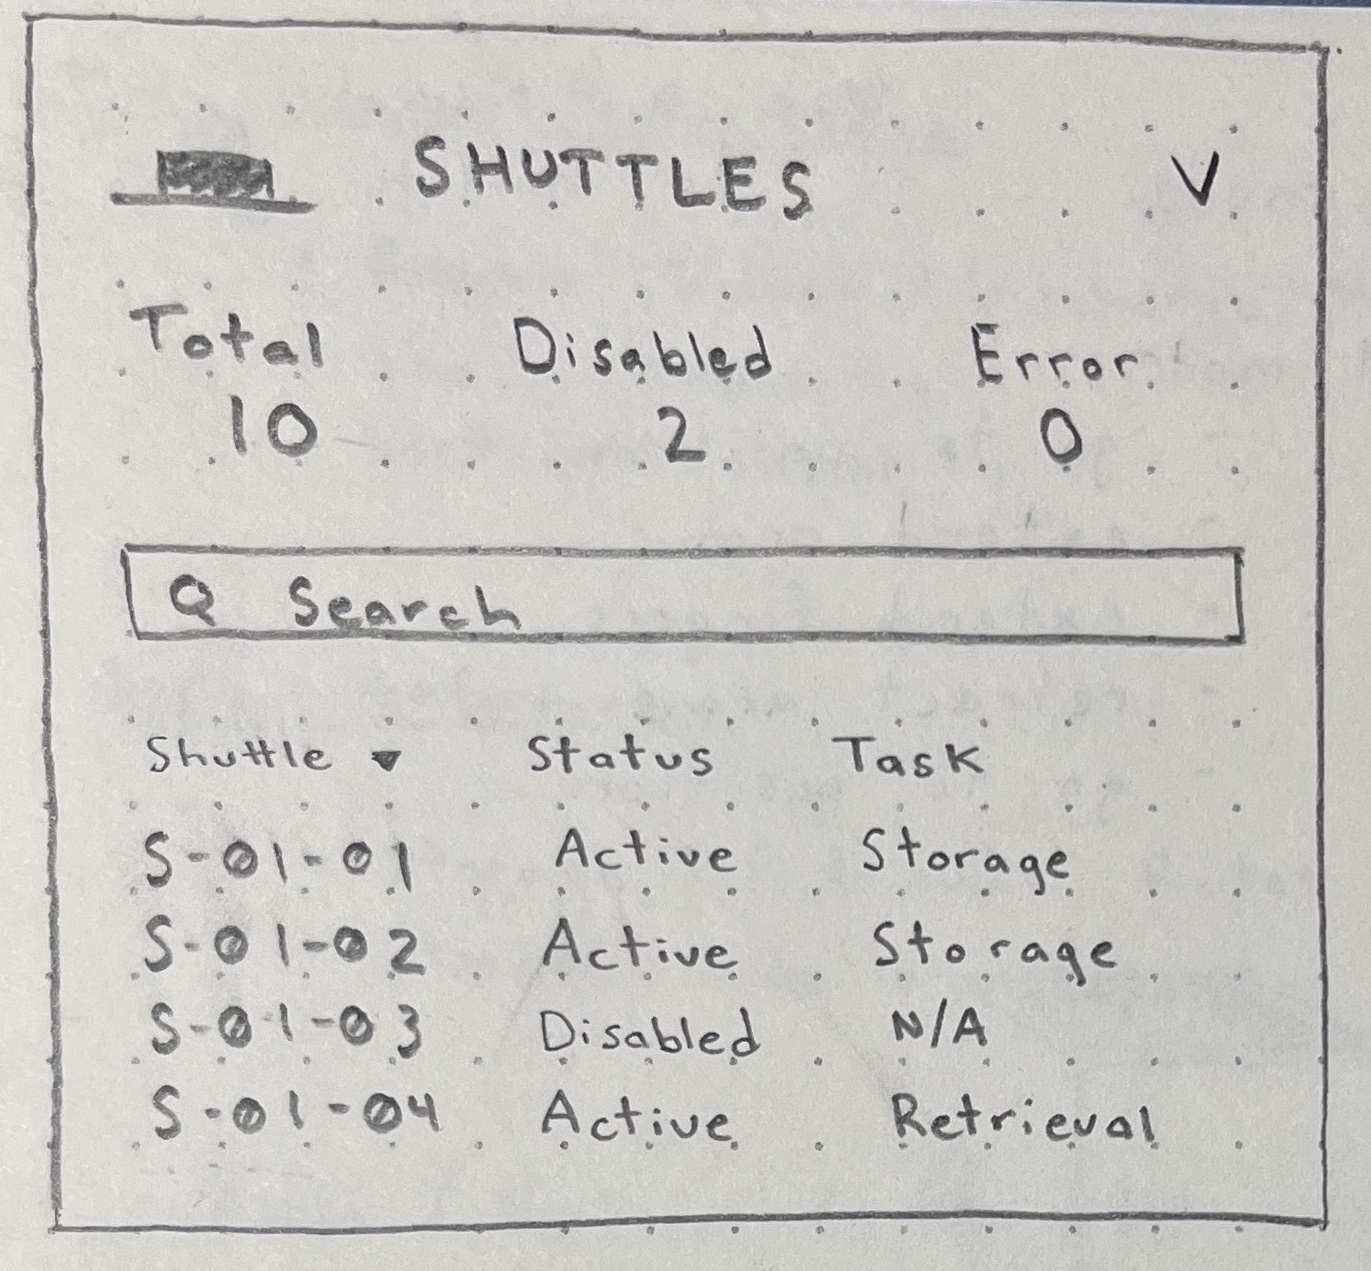 SHUTTLES V
Total Disabled Error
10 2 0
Q Search
Shuttle ▼ Status Task
S-01-01 Active Storage
S-01-02 Active Storage
S-01-03 Disabled N/A
S-01-04 Active Retrieval